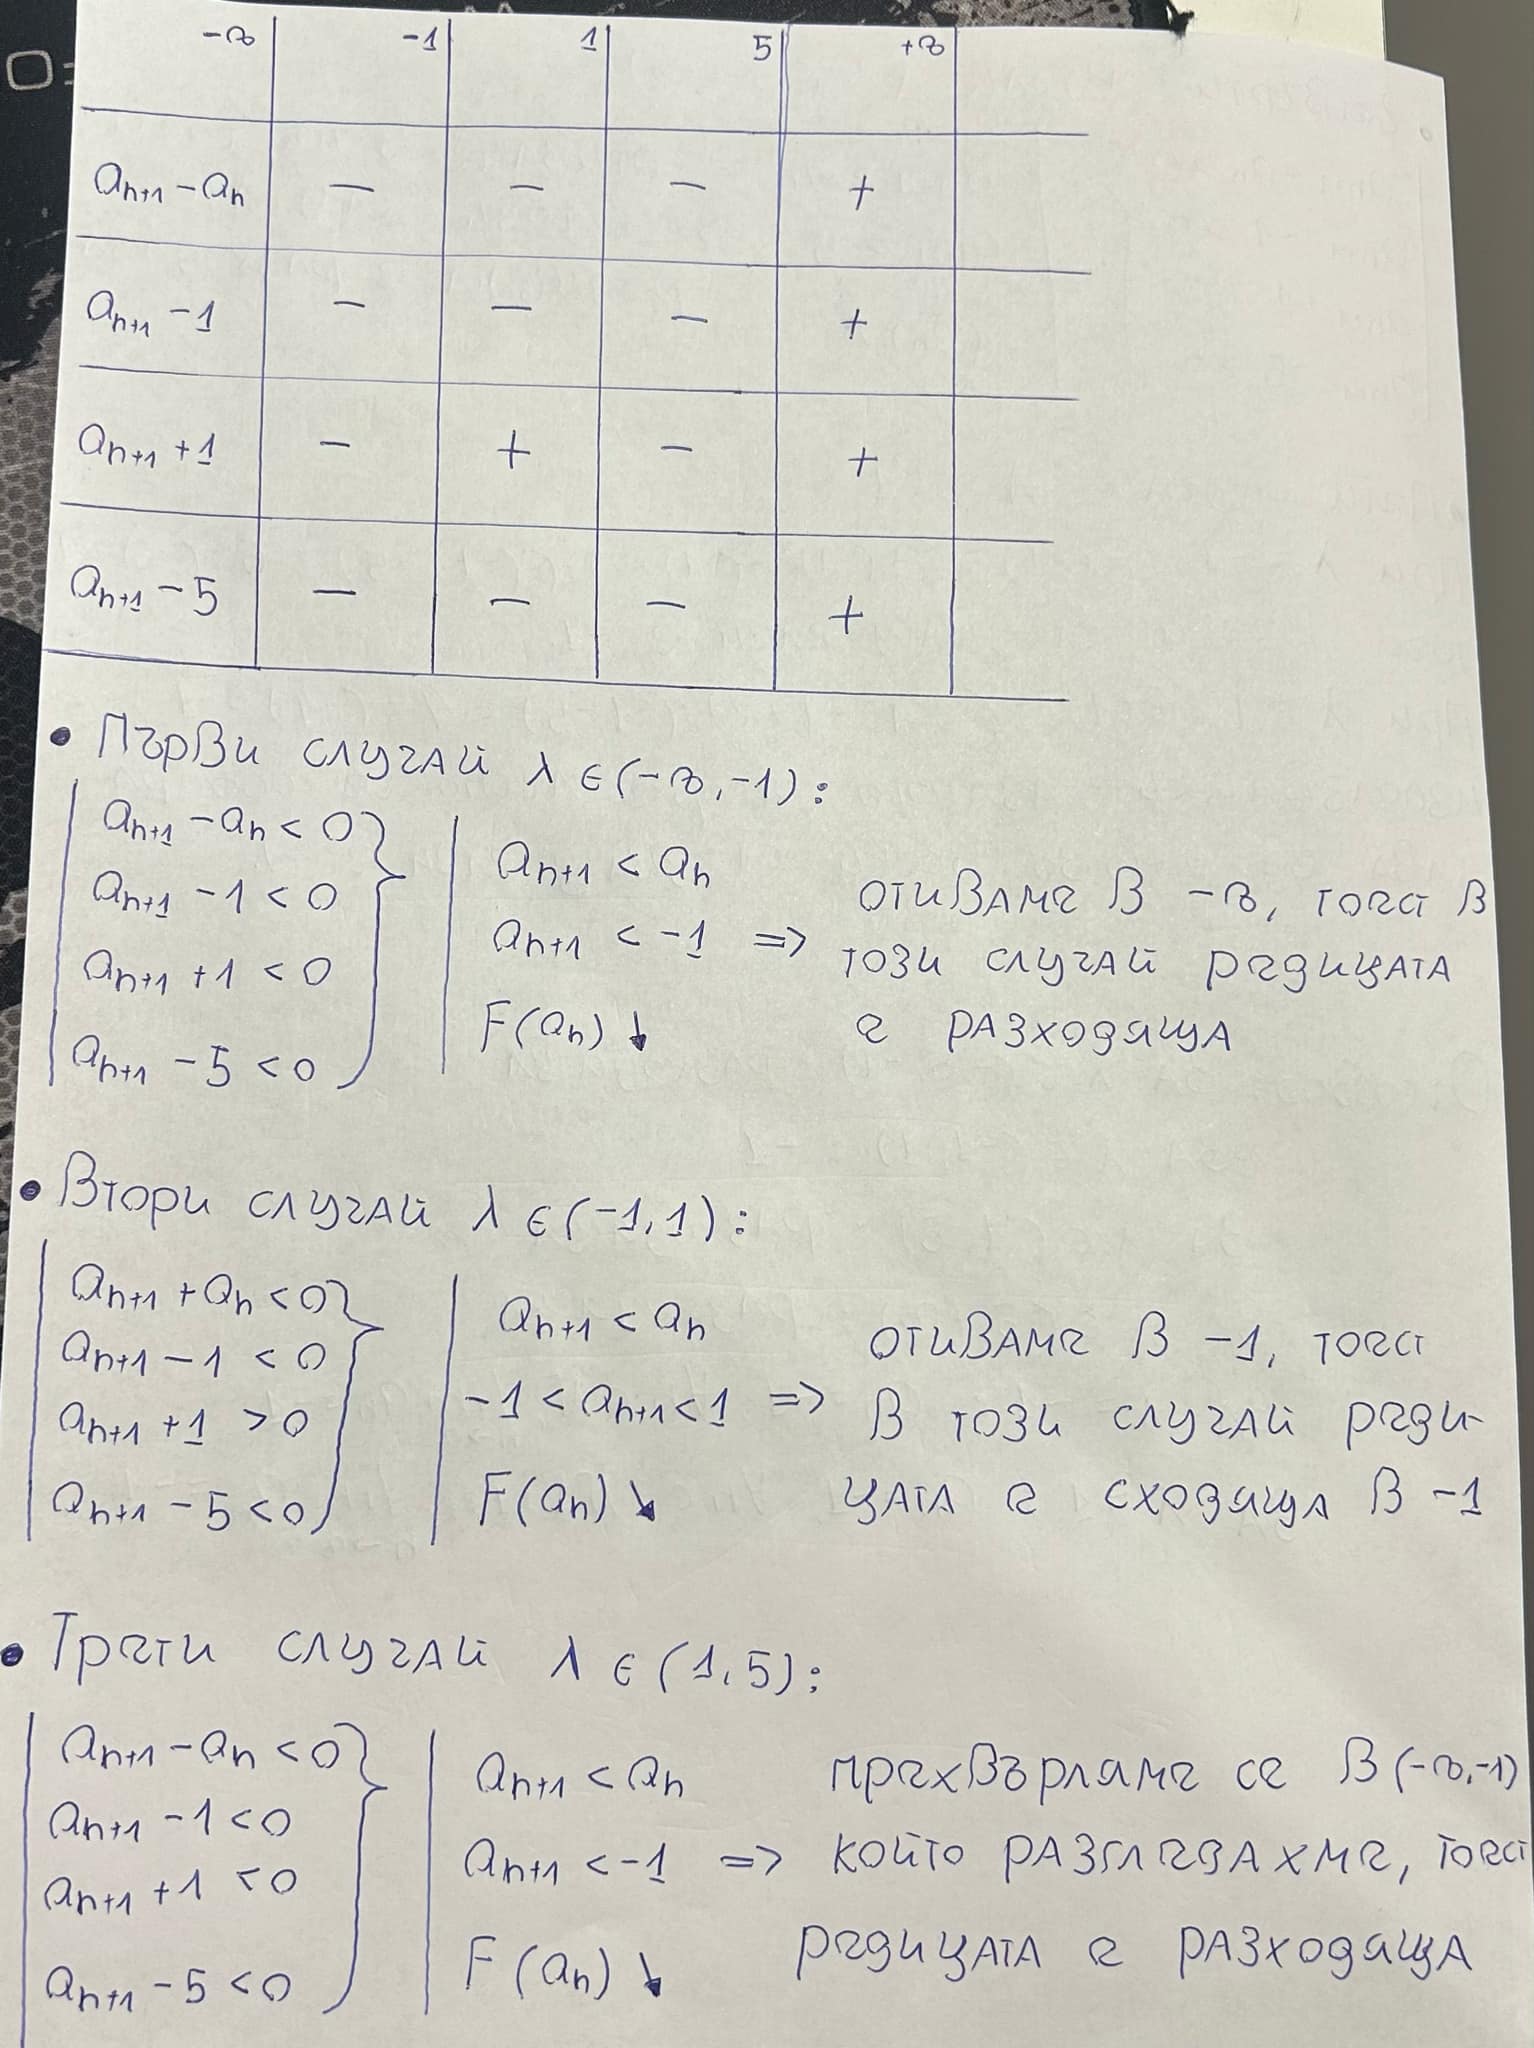 -∞ -1 1 5 +∞
aₙ₊₁ - aₙ − − − +
aₙ₊₁ - 1 − − − +
aₙ₊₁ + 1 − + − +
aₙ₊₁ - 5 − − − +
• Първи случай λ ∈ (-∞, -1):
aₙ₊₁ - aₙ < 0
aₙ₊₁ - 1 < 0
aₙ₊₁ + 1 < 0
aₙ₊₁ - 5 < 0
aₙ₊₁ < aₙ
aₙ₊₁ < -1 =>
F(aₙ) ↓
отиваме в -∞, тоест в
този случай редицата
е разходяща
• Втори случай λ ∈ (-1, 1):
aₙ₊₁ + aₙ < 0
aₙ₊₁ - 1 < 0
aₙ₊₁ + 1 > 0
aₙ₊₁ - 5 < 0
aₙ₊₁ < aₙ
-1 < aₙ₊₁ < 1 =>
F(aₙ) ↘
отиваме в -1, тоест
в този случай реди-
цата е сходяща в -1
• Трети случай λ ∈ (1, 5):
aₙ₊₁ - aₙ < 0
aₙ₊₁ - 1 < 0
aₙ₊₁ + 1 < 0
aₙ₊₁ - 5 < 0
aₙ₊₁ < aₙ
aₙ₊₁ < -1 =>
F(aₙ) ↘
прехвърляме се в (-∞, -1)
който разгледвахме, тоест
редицата е разходяща